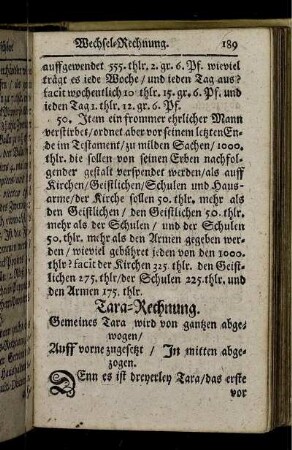 Wechsel-Rechnung. 189
auffgewendet 555. thlr. 2. gr. 6. Pf. wieviel
trägt es iede Woche / und ieden Tag aus?
facit wochentlich 10 thlr. 15. gr. 6. Pf. und
ieden Tag 1. thlr. 12. gr. 6. Pf.
50. Item ein frommer ehrlicher Mann
verstirbet / ordnet aber vor seinem letzten En-
de im Testament / zu milden Sachen / 1000.
thlr. die sollen von seinen Erben nachfol-
gender gestalt verspendet werden / als auff
Kirchen / Geistlichen / Schulen und Haus-
arme / der Kirche sollen 50. thlr. mehr als
den Geistlichen / den Geistlichen 50. thlr.
mehr als der Schulen / und der Schulen
50. thlr. mehr als den Armen gegeben wer-
den / wieviel gebühret ieden von den 1000.
thlr? facit der Kirchen 325. thlr. den Geist-
lichen 275. thlr / der Schulen 225. thlr. und
den Armen 175. thlr.
Tara-Rechnung.
Gemeines Tara wird von gantzen abge-
wogen /
Auff vorne zugesetzt / In mitten abge-
zogen.
Denn es ist dreyerley Tara / das erste
vor